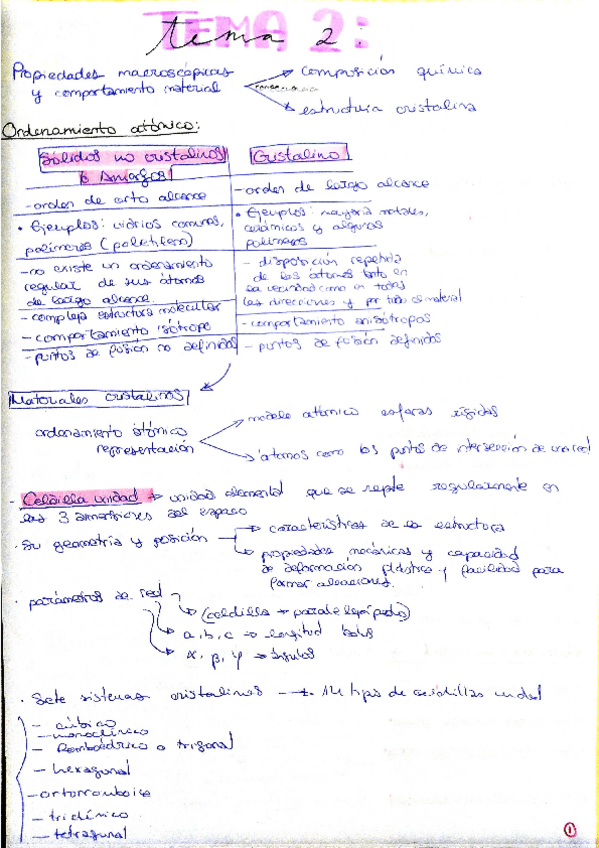 TEMA 2:
tema 2
Propiedades macroscópicas
y comportamiento material
→ composición química
→ estructura cristalina
Ordenamiento atómico:
Sólidos no cristalinos
o Amorfos
- orden de corto alcance
• Ejemplos: vidrios comunes,
polímeros (polietileno)
- no existe un ordenamiento
regular de sus átomos
de largo alcance
- compleja estructura molecular
- comportamiento isótropo
- puntos de fusión no definidos
Cristalino
- orden de largo alcance
• Ejemplos: mayoría metales,
cerámicos y algunos
polímeros
- disposición repetida
de los átomos tanto en
la vecindad como en todas
las direcciones y por todo el material
- comportamiento anisótropos
- puntos de fusión definidos
Materiales cristalinos
ordenamiento atómico
representación
→ modelo atómico esferas rígidas
→ átomos como los puntos de intersección de una red
- Celdilla unidad → unidad elemental que se repite regularmente en
las 3 direcciones del espacio
· Su geometría y posición
→ características de la estructura
→ propiedades mecánicas y capacidad
de deformación plástica y facilidad para
formar aleaciones.
· parámetros de red
→ (celdilla → paralelepípedo)
→ a, b, c → longitud lados
→ α, β, γ → ángulos
· Siete sistemas cristalinos → 14 tipos de celdillas unidad
- cúbico
- monoclínico
- Romboédrico o trigonal
- hexagonal
- ortorrómbico
- triclínico
- tetragonal
1